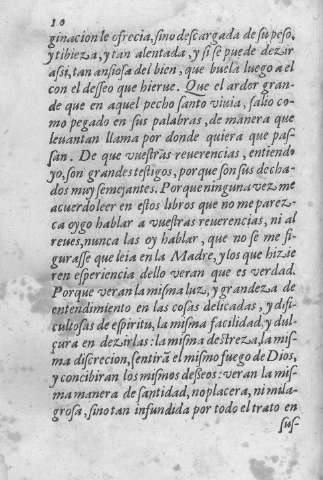 10
ginacion le ofrecia, sino descargada de su peso,
y tibieza, y tan alentada, y si se puede dezir
assi, tan ansiosa del bien, que buela luego a el
con el desseo que hierue. Que el ardor gran-
de que en aquel pecho santo viuia, salio co-
mo pegado en sus palabras, de manera que
leuantan llama por donde quiera que pas-
san. De que vuestras reuerencias, entiendo
yo, son grandes testigos, porque son sus decha-
dos muy semejantes. Porque ninguna vez me
acuerdo leer en estos libros que no me parez-
ca oygo hablar a vuestras reuerencias, ni al
reues, nunca las oy hablar, que no se me fi-
gurasse que leia en la Madre, y los que hizie
ren esperiencia dello veran que es verdad.
Porque veran la misma luz, y grandeza de
entendimiento en las cosas delicadas, y difi-
cultosas de espiritu, la misma facilidad, y dul-
çura en dezirlas: la misma destreza, la mis-
ma discrecion, sentirã el mismo fuego de Dios,
y concibiran los mismos desseos: veran la mis-
ma manera de santidad, no placera, ni mila-
grosa, sino tan infundida por todo el trato en
sus-